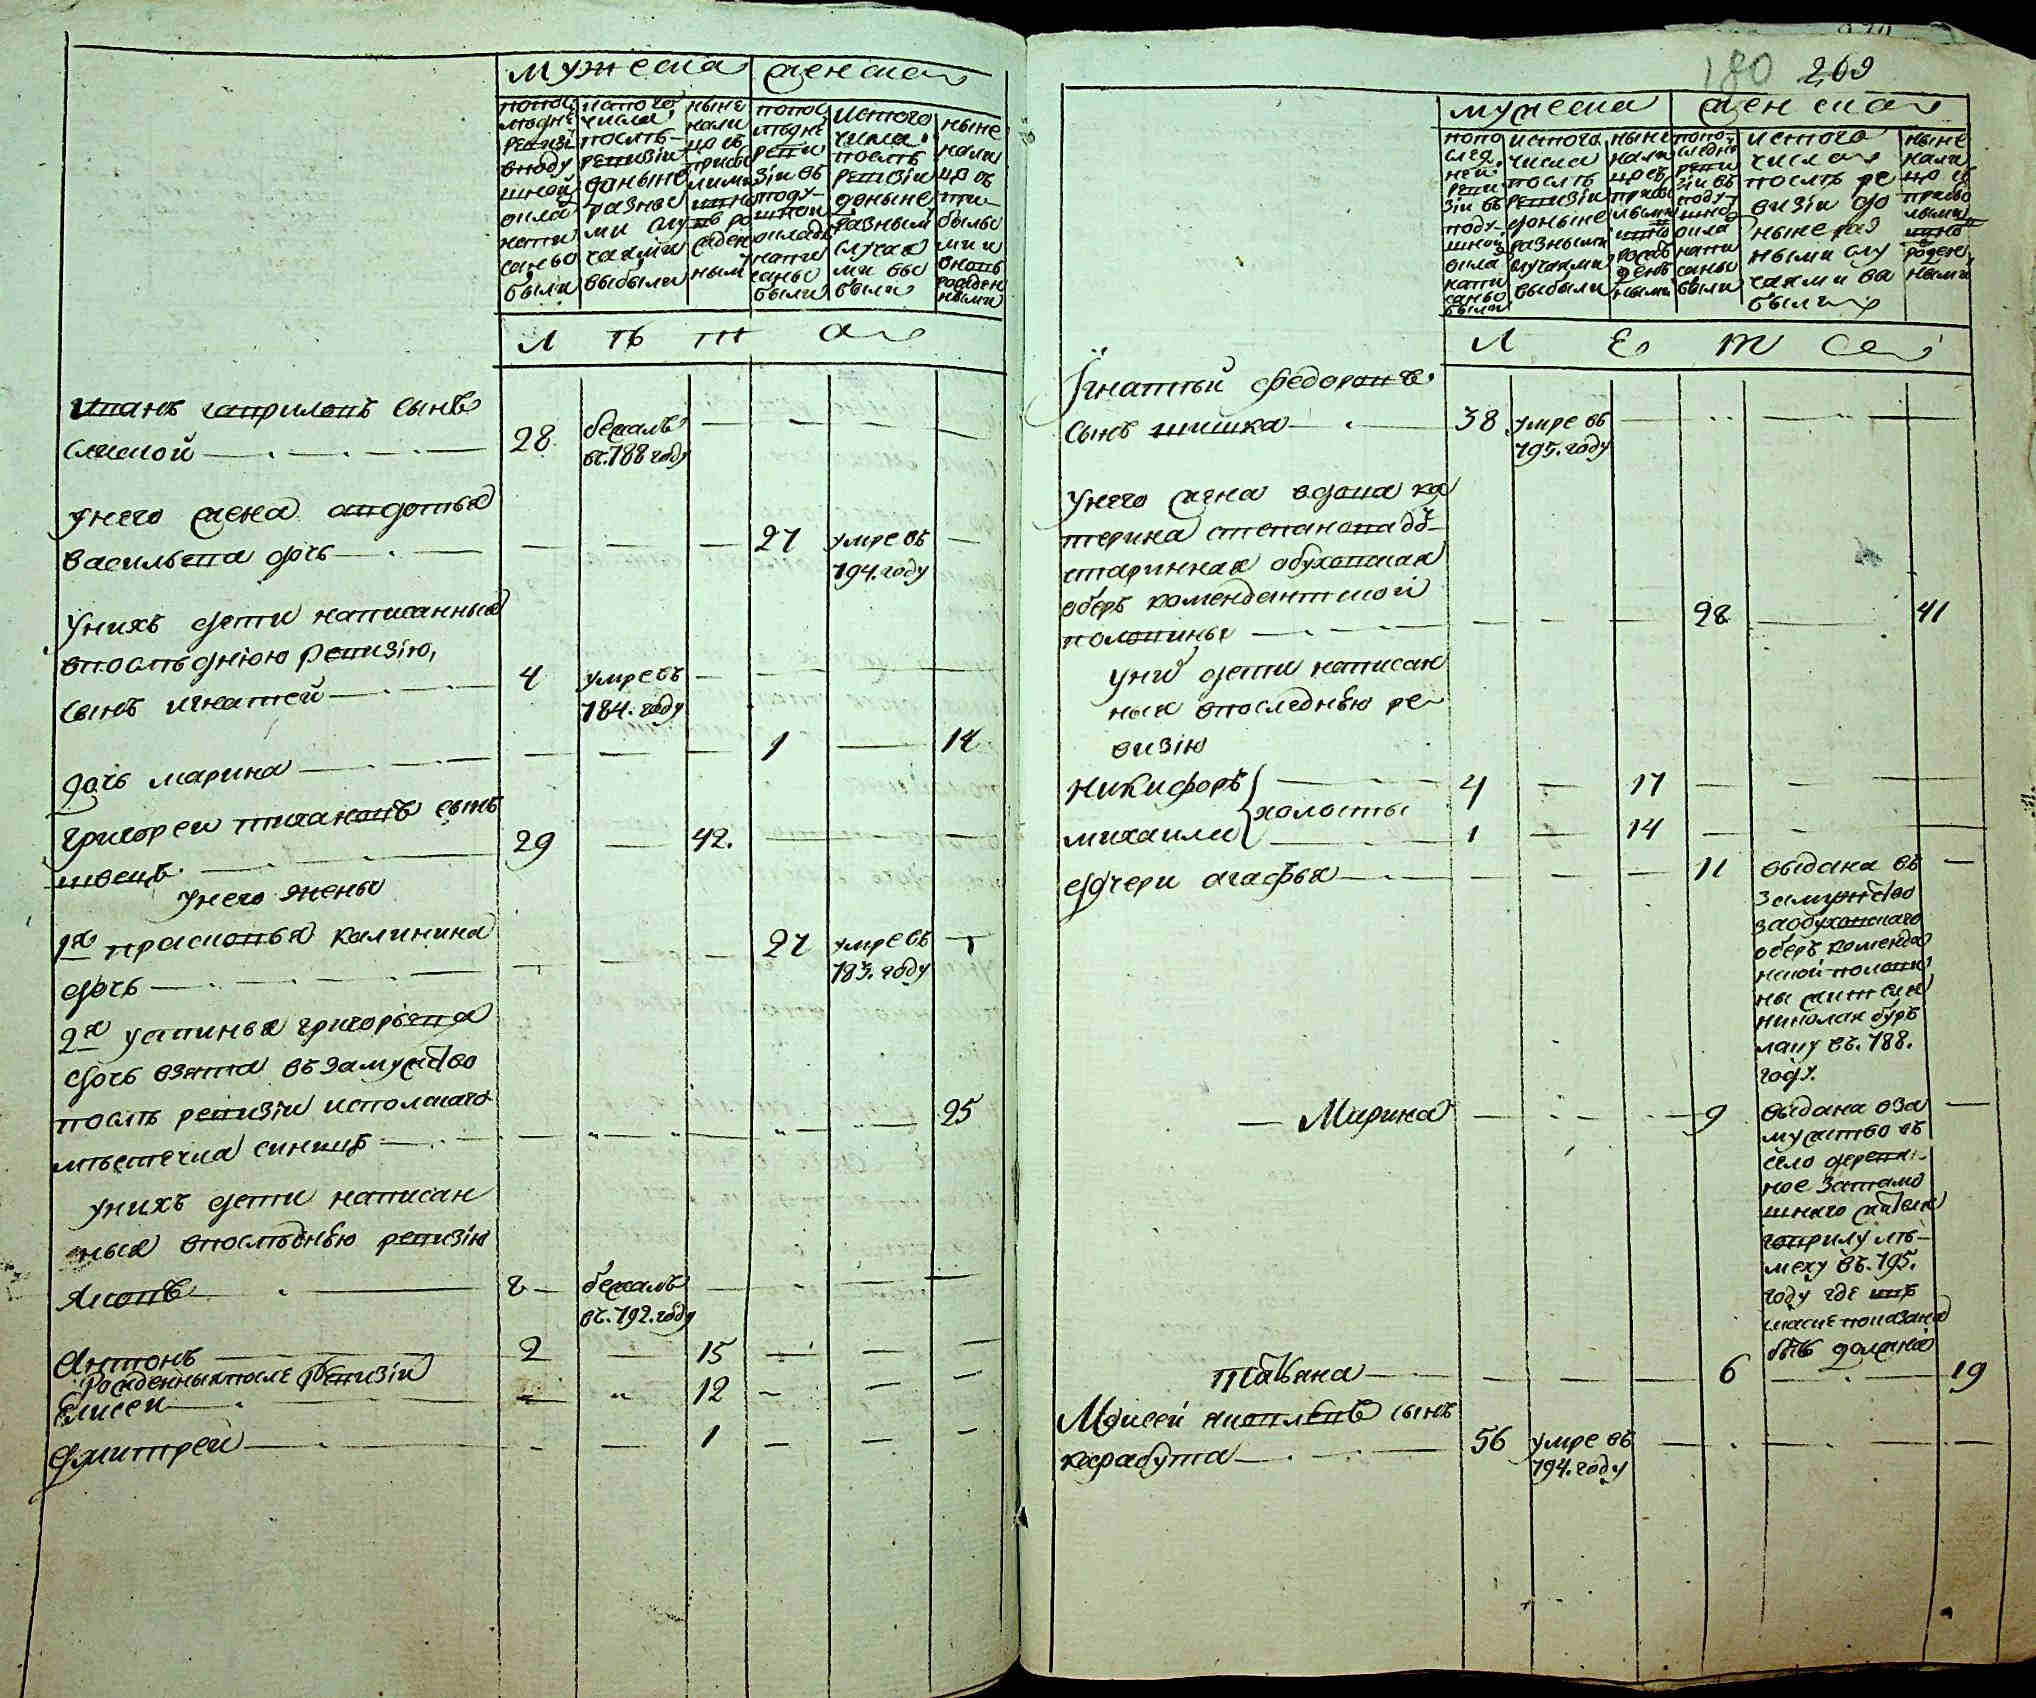 мужеска женска
попос
лѣдне
ревизі
вподу
шной
окла
напи
саньı
были
изтого
числа
послѣ
ревизіи
доныне
разньı
ми слу
чаями
выбыли
ныне
нали
цо съ
попос
лѣдне
реви
зіи въ
поду
шной
окладъ
напи
саны
были
изтого
числа
послѣ
ревизіи
доныне
разными
случая
ми вы
были
ныне
нали
цо съ
при
былы
ми и
вновь
рожден
ными
Л Ѣ Т А
Иванъ гавриловъ сынъ
28 бежалъ
въ 788 году
У него жена авдотья
васильева дочь 27 умре въ
794. году
У нихъ дети написанныя
впослѣднюю ревизію,
сынъ игнатей 4 умре въ
784. году
дочь марина 1 14
григореи тихановъ сынъ
швецъ 29 42.
У него жены
1я прасковья калинина
дочь 27 умре въ
783. году
2я устинья григорьева
дочь взята въ замужство
послѣ ревизіи исполскаго
мѣстечка синицъ 25
У нихъ дети написан
ныя впослѣднюю ревизію
Яковъ 2 бежалъ
въ. 792. году
Антонъ 2 15
Рожденныя после Ревизіи
Елисеи 12
Дмитреи 1
180 269
мужеска женска
попо
след
ней
реви
зіи въ
поду
шной
окла
напи
саны
были
изтого
числа
послѣ
ревизіи
доныне
разными
случаями
выбыли
ныне
нали
цо съ
изтого
числа
послѣ ре
визіи до
ныне раз
ными слу
чаями вы
были
ныне
нали
цо съ
прибы
лыми
рожден
ными
Л Е Т А
Игнатьй федоровъ
сынъ шишка 38 умре въ
795. году
У него жена вдова ка
терина степанова дочь
старинная обуховская
оберъ комендантской
половины 28 41
У ни дети написан
ныя впоследнюю ре
визію
Никифоръ
холосты 4 17
михаила 1 14
дочери агафья 11 выдана въ
замужство
за обуховскаго
оберъ коменда
нской полови
ны жителя
николая бур
лаку въ. 788.
году.
Марина 9 выдана вза
мужство въ
село дерепа
ное затамо
шнаго жителя
гаврилу мѣ
меху въ. 795.
году где
показана
быть должна
Татьяна 6 19
Моисей яковлевъ сынъ
карабута 56 умре въ
794. году